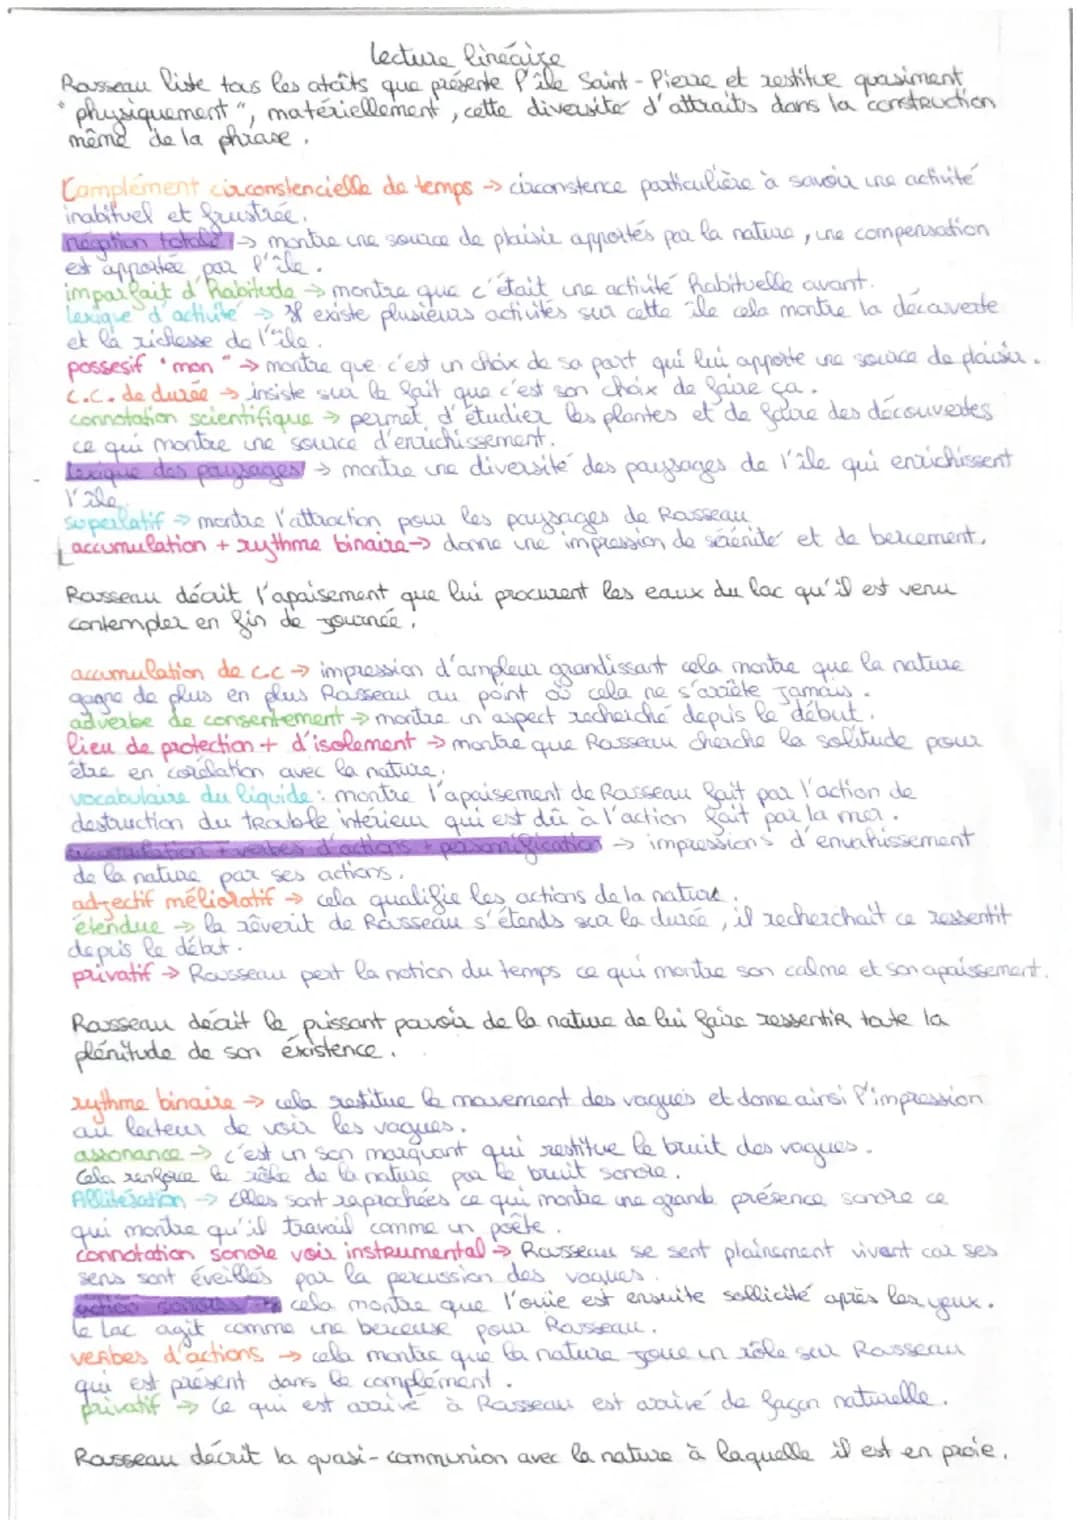 lecture linéaire
Rousseau liste tous les atoûts que présente l'île Saint-Pierre et restitue quasiment
"physiquement", matériellement, cette diversité d'attraits dans la construction
même de la phrase.
Complément circonstencielle de temps → circonstence particulière à savoir une activité
inabituel et frustrée.
négation totale → montre une source de plaisir apportés par la nature, une compensation
est apportée par l'île.
imparfait d'habitude → montre que c'était une activité habituelle avant.
lexique d'activité → Il existe plusieurs activités sur cette île cela montre la découverte
et la richesse de l'île.
possesif "mon" → montre que c'est un choix de sa part qui lui apporte une source de plaisir.
c.c. de durée → insiste sur le fait que c'est son choix de faire ça.
connotation scientifique → permet d'étudier les plantes et de faire des découvertes
ce qui montre une source d'enrichissement.
lexique des paysages → montre une diversité des paysages de l'île qui enrichissent
l'île.
superlatif → montre l'attraction pour les paysages de Rousseau
accumulation + rythme binaire → donne une impression de sérénité et de bercement.
Rousseau décrit l'apaisement que lui procurent les eaux du lac qu'il est venu
contempler en fin de journée.
accumulation de c.c → impression d'ampleur grandissant cela montre que la nature
gagne de plus en plus Rousseau au point où cela ne s'arrête jamais.
adverbe de consentement → montre un aspect recherché depuis le début.
lieu de protection + d'isolement → montre que Rousseau cherche la solitude pour
être en corélation avec la nature.
vocabulaire du liquide : montre l'apaisement de Rousseau fait par l'action de
destruction du trouble intérieur qui est dû à l'action fait par la mer.
accumulation + verbes d'actions + personification → impressions d'envahissement
de la nature par ses actions.
adjectif mélioratif → cela qualifie les actions de la nature.
étendue → la rêverit de Rousseau s'étends sur la durée, il recherchait ce ressentit
depuis le début.
privatif → Rousseau pert la notion du temps ce qui montre son calme et son apaissement.
Rousseau décrit le puissant pouvoir de la nature de lui faire ressentir toute la
plénitude de son éxistence.
rythme binaire → cela restitue le mouvement des vagues et donne ainsi l'impression
au lecteur de voir les vagues.
assonance → c'est un son marquant qui restitue le bruit des vagues.
Cela renforce le rôle de la nature par le bruit sonore.
Allitération → Elles sont raprochées ce qui montre une grande présence sonore ce
qui montre qu'il travail comme un poète.
connotation sonore voir instrumental → Rousseau se sent plainement vivant car ses
sens sont éveillés par la percussion des vagues.
cela montre que l'ouïe est ensuite sollicité après les yeux.
le lac agit comme une berceuse pour Rousseau.
verbes d'actions → cela montre que la nature joue un rôle sur Rousseau
qui est présent dans le complément.
privatif → Ce qui est arrivé à Rousseau est arrivé de façon naturelle.
Rousseau décrit la quasi-communion avec la nature à laquelle il est en proie.